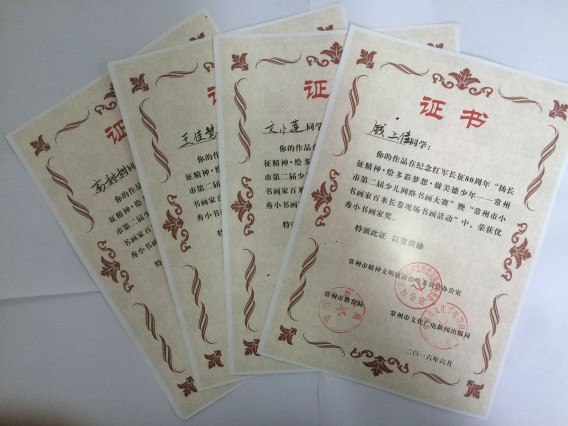 证书
同学：
你的作品在纪念红军长征80周年“扬长
征精神·绘多彩梦想·做美德少年——常州
市第二届少儿网络书画大赛”暨“常州市小
书画家百米长卷现场书画活动”中，荣获优
秀小书画家奖。
特颁此证 以资鼓励
常州市精神文明建设指导委员会办公室
常州市教育局
常州市文化广电新闻出版局
二〇一六年六月
证
文小莲同学
你的作
征精神·绘
市第二届少
书画家百米
秀小书画家
特颁
证
王佳慧
你的
征精神
市第二届
书画家百
秀小书画
特
证
同
你的
征精神
市第二
书画家
秀小书